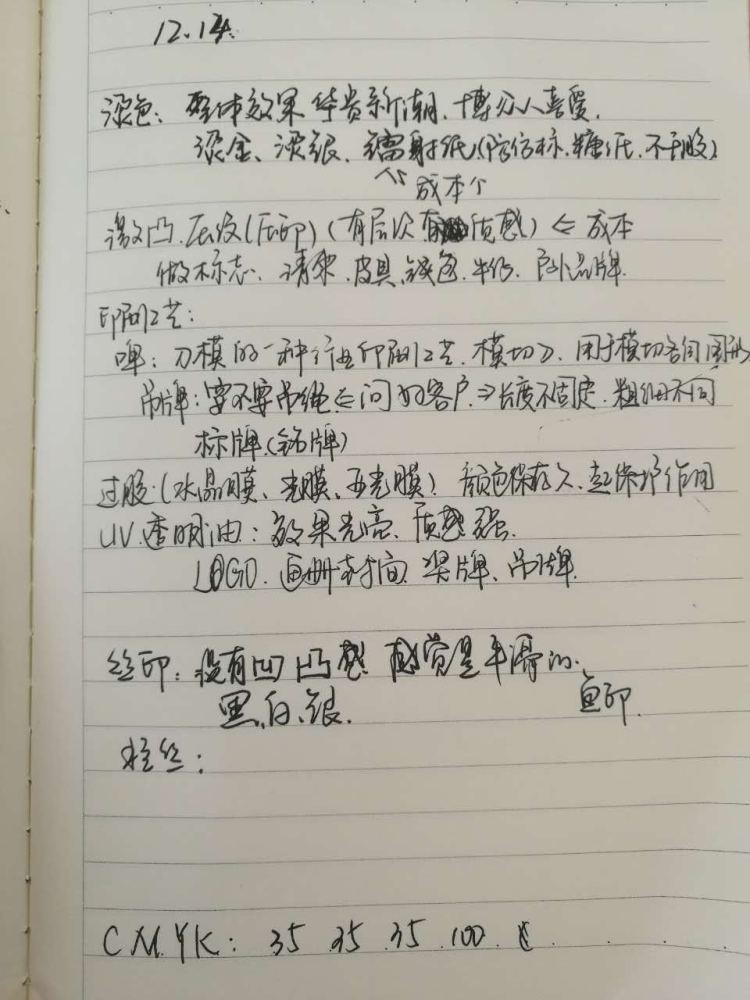 12.14.
烫色：整体效果华贵新潮，博众人喜爱，
烫金、烫银、镭射纸(防伪标.糖纸.不干胶)
成本个
激凸.压纹(压印)(有层次有质感) ⇐ 成本
做标志、请柬、皮具,钱包、牛仔、户外品牌.
印刷工艺：
啤：刀模的一种行业印刷工艺.模切刀、用于模切各间图形
吊牌：要不要吊绳⇐问的客户⇒长度不固定.粗细不同
标牌.(铭牌)
过胶.(水晶膜、光膜、亚光膜)颜色保存久、起保护作用
UV.透明油：效果光亮、质感强.
LOGO.画册封面 奖牌、吊牌.
丝印：没有凹凸感 感觉是平滑的.
黑,白、银.
丝：
CMYK：35 35 35 100